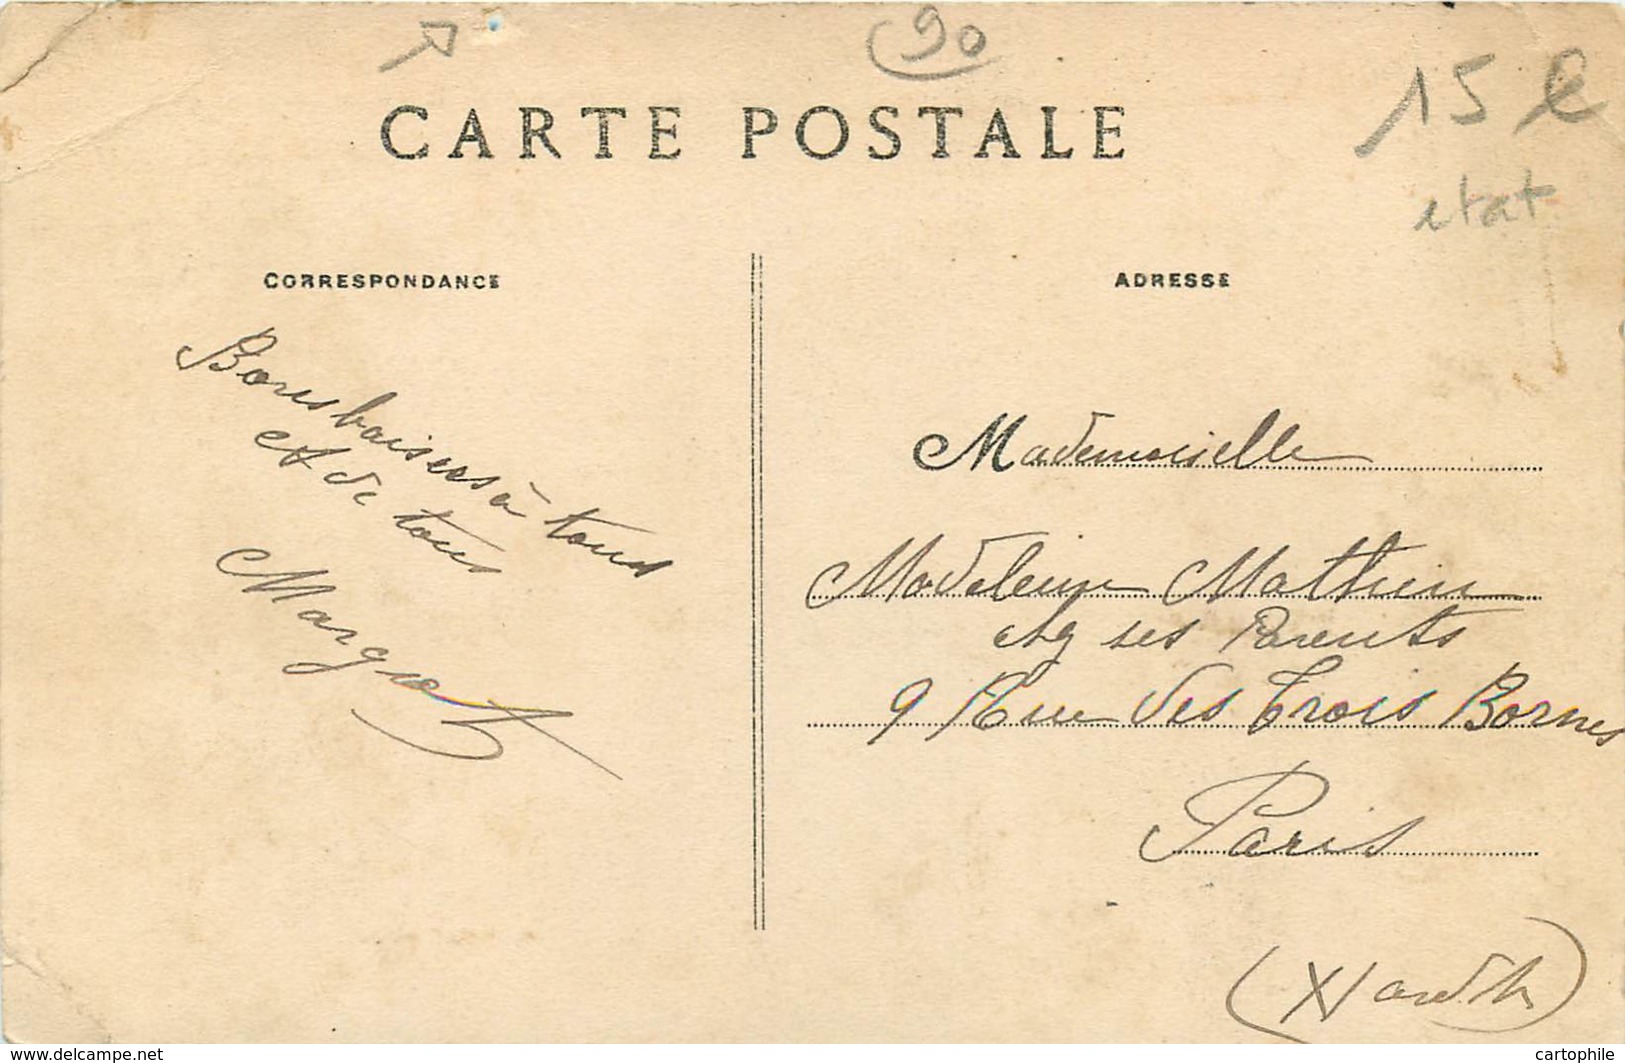 90
15 €
etat
CARTE POSTALE
CORRESPONDANCE
Bons baisers à tous
et de tous
Margot
ADRESSE
Mademoiselle
Madeleine Mathieu
chz ses Parents
9 Rue des Trois Bornes
Paris
(XI ardt)
www.delcampe.net
cartophile